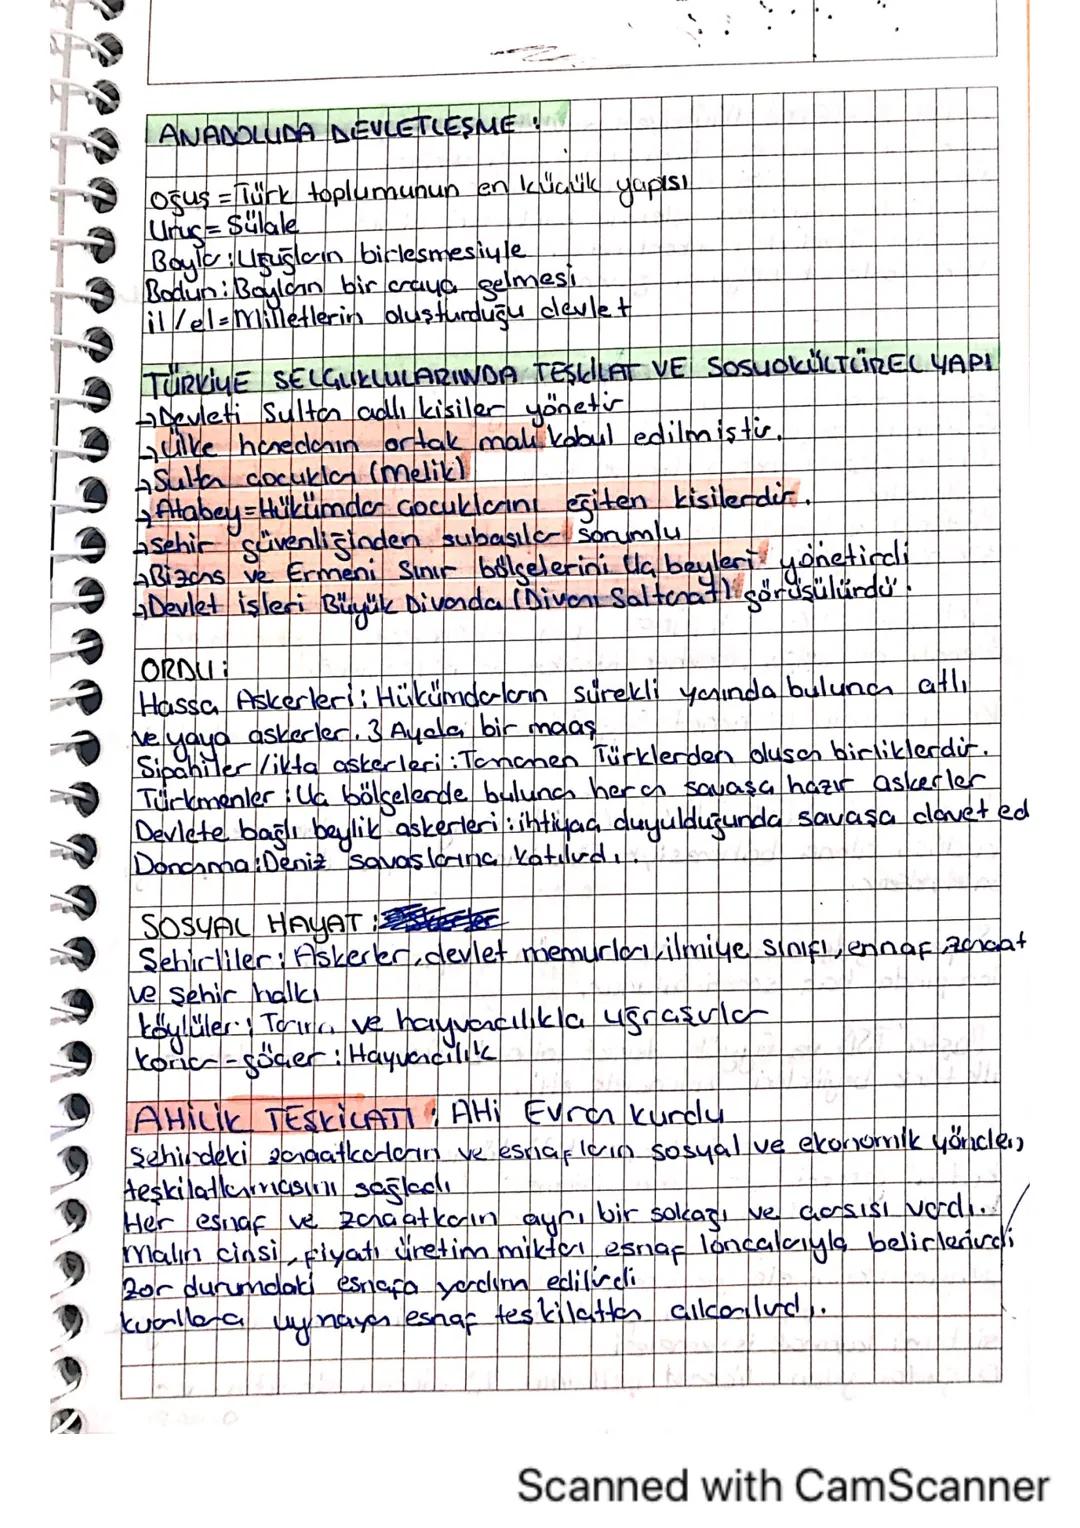 ANADOLUDA DEVLETLEŞME :
Oğuş = Türk toplumunun en küçük yapısı
Uruş = Sülale
Boylar : Uruğların birlesmesiyle
Bodun : Boyların bir araya gelmesi
il / el = Milletlerin oluşturduğu devlet
TÜRKİYE SELÇUKLULARINDA TEŞKİLAT VE SOSYOKÜLTÜREL YAPI
→Devleti Sultan adlı kisiler yönetir
→Ülke hanedanın ortak malı kabul edilmiştir.
→Sultan çocukları (Melik)
→Atabey=Hükümdar çocuklarını eğiten kisilerdir.
→şehir güvenliğinden subasılar sorumlu
→Bizans ve Ermeni Sınır bölgelerini Uç beyleri yönetirdi
→Devlet işleri Büyük Divanda (Divanı Saltanat) görüşülürdü.
ORDU :
Hassa Askerleri : Hükümdarların sürekli yanında bulunan atlı
ve yaya askerler. 3 Ayda bir maaş
Sipahiler / ikta askerleri : Tamamen Türklerden olusan birliklerdir.
Türkmenler : Uç bölgelerde bulunan her an savaşa hazır askerler
Devlete bağlı beylik askerleri : ihtiyaç duyulduğunda savaşa davet ed
Donanma : Deniz savaslarına katılırdı.
SOSYAL HAYAT :
Şehirliler : Askerler, devlet memurları, ilmiye sınıfı, ennaf, zanaat
ve şehir halkı
köylüler : Tarım ve hayvancılıkla uğraşırlar
konar-göçer : Hayvancılık
AHİLİK TEŞKİLATI : AHİ Evran kurdu
Şehirdeki zanaatkarların ve esnafların sosyal ve ekonomik yönden
teşkilatlanmasını sağladı
Her esnaf ve zanaatkarın ayrı bir sokağı ve çarsısı vardı.
Malın cinsi, fiyatı üretim miktarı esnaf loncalarıyla belirlenirdi
Zor durumdaki esnafa yardım edilirdi
kurallara uymayan esnaf teskilattan çıkarılırdı.
Scanned with CamScanner